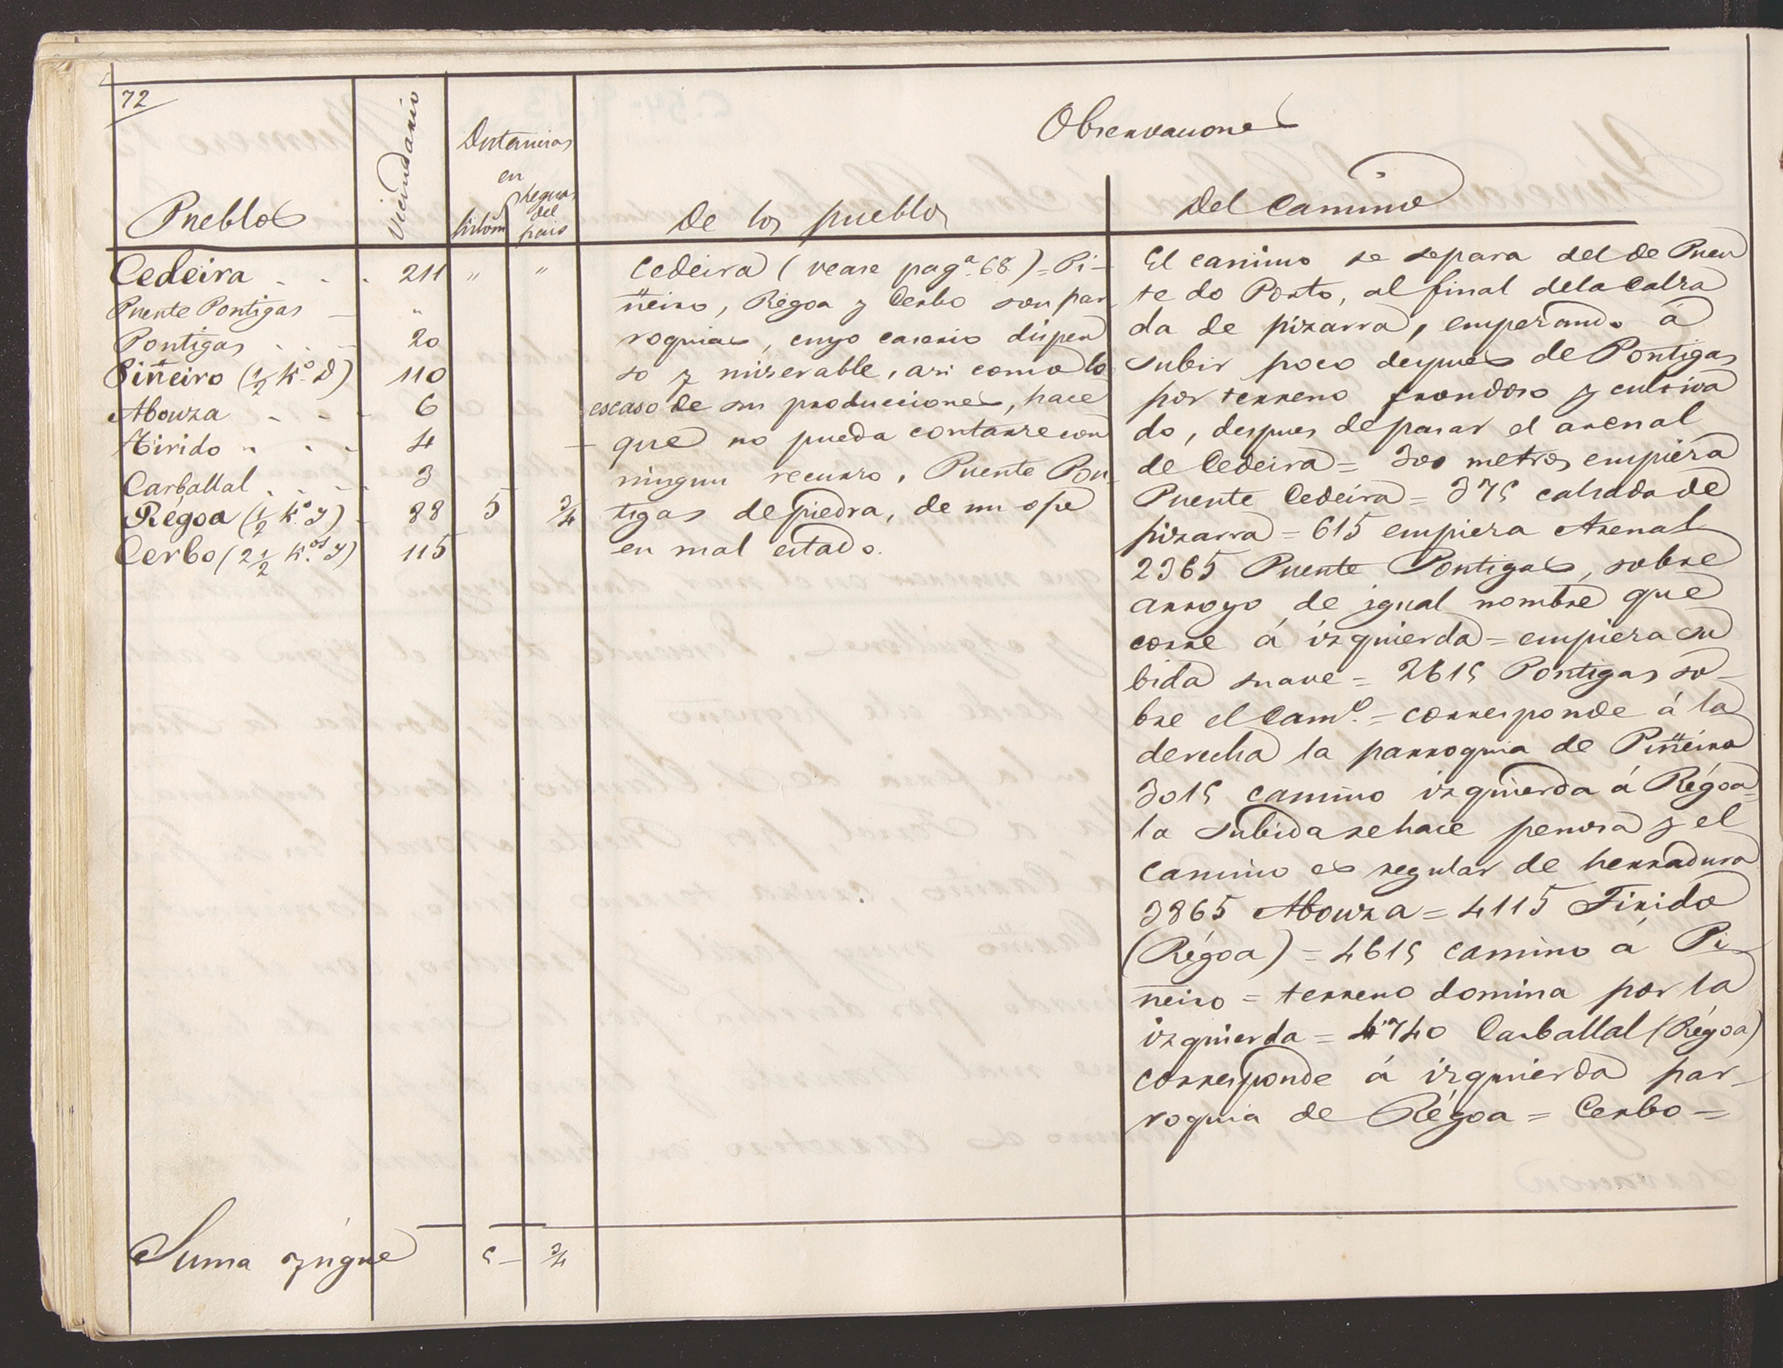 72
Pueblos
Vicindario
Distancias
en
kilóm
leguas
del
pais
Observaciones
De los pueblos
Del Camino
Cedeira . . . 211 " "
Puente Pontigas — "
Pontigas . . . 20
Piñeiro (1/2 K.º D) 110
Abouza . . . 6
Tirido . . . 4
Carballal . . . 3
Régoa (1/2 K.º Y) . 88 5 3/4
Cerbo (2 1/2 K.ºs Y) 115
Suma y sigue 5 — 3/4
Cedeira (vease pag.ª 68) = Pi-
ñeiro, Régoa y Cerbo son par
roquias, cuyo caserio disper
so y miserable, asi como lo
escaso de sus producciones, hace
que no pueda contarse con
ningun recurso. Puente Pon-
tigas de piedra, de un ojo
en mal estado.
El camino se separa del de Puen
te do Porto, al final de la Calza
da de pizarra, empezando á
subir poco despues de Pontigas
por terreno frondoso y cultiva
do, despues de pasar el arenal
de Cedeira = 300 metros empieza
Puente Cedeira = 375 calzada de
pizarra = 615 empieza Arenal
2365 Puente Pontigas, sobre
arroyo de igual nombre que
corre á izquierda = empieza su
bida suave = 2615 Pontigas so-
bre el Cam.º = corresponde á la
derecha la parroquia de Piñeiro
3015 camino izquierda á Régoa =
la subida se hace penosa y el
camino es regular de herradura
3865 Abouza = 4115 Tirido
(Régoa) = 4615 camino á Pi
ñeiro = terreno domina por la
izquierda = 4740 Carballal (Régoa)
corresponde á izquierda par-
roquia de Régoa = Cerbo =